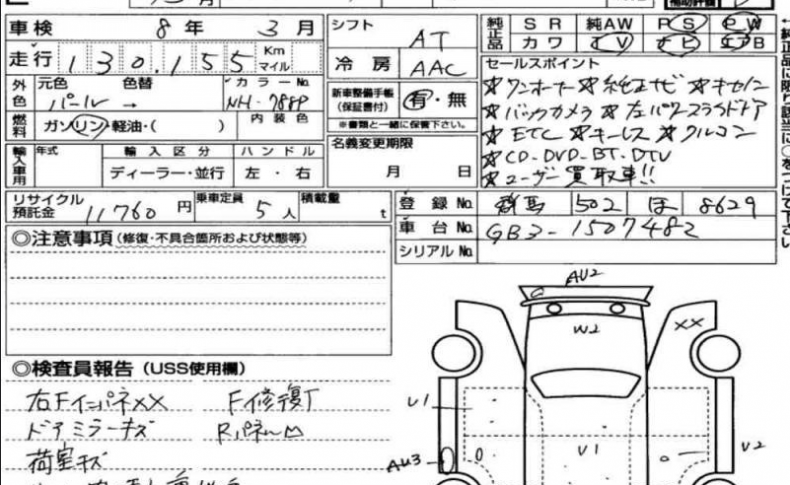 車検 8年 3月
シフト AT
純正品 SR 純AW PS PW
カワ TV ナビ エアB
走行 130,155 Km マイル
冷房 AAC
セールスポイント
外色 元色 色替 カラーNo.
パール → NH-788P
新車整備手帳(保証書付) 有・無
※書類と一緒に保管下さい。
☆ワンオーナー ☆純正ナビ ☆キセノン
☆バックカメラ ☆左パワースライドドア
☆ETC ☆キーレス ☆クルコン
☆CD・DVD・BT・DTV
☆ユーザー買取車!!
燃料 ガソリン・軽油・( ) 内装色
名義変更期限
月 日
輸入車用 年式 輸入区分 ハンドル
ディーラー・並行 左・右
リサイクル預託金 11760円 乗車定員 5人 積載量 t
登録No. 群馬 502 ほ 8629
車台No. GB3-1507482
シリアルNo.
◎注意事項(修復・不具合箇所および状態等)
AU2
W2
XX
◎検査員報告(USS使用欄)
右Fインパネ××
F修復了
ドアミラーキズ
荷室キズ
U1
U1
V2
AU3